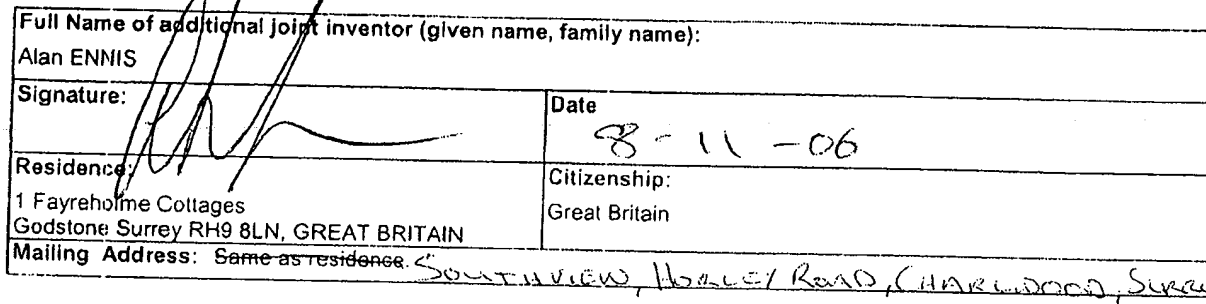 Full Name of additional joint inventor (given name, family name):
Alan ENNIS
Signature:
Date
8-11-06
Residence:
1 Fayreholme Cottages
Godstone Surrey RH9 8LN, GREAT BRITAIN
Citizenship:
Great Britain
Mailing Address: Same as residence. SOUTHVIEW, HORLEY ROAD, CHARLWOOD, SURRE